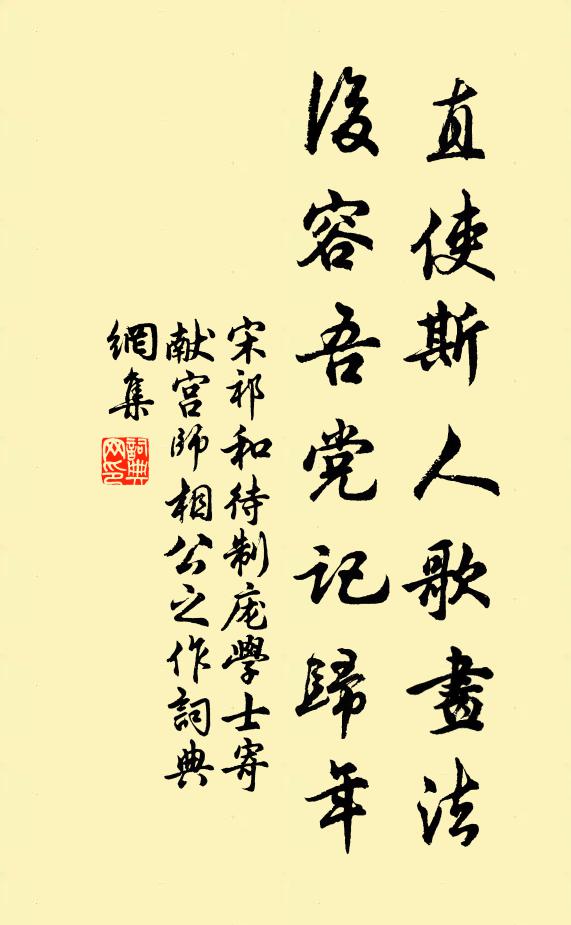 直使斯人歌畫法
後容吾党記歸年
宋祁和待制庞學士寄
献宫師相公之作詞典
網集
詞典网印